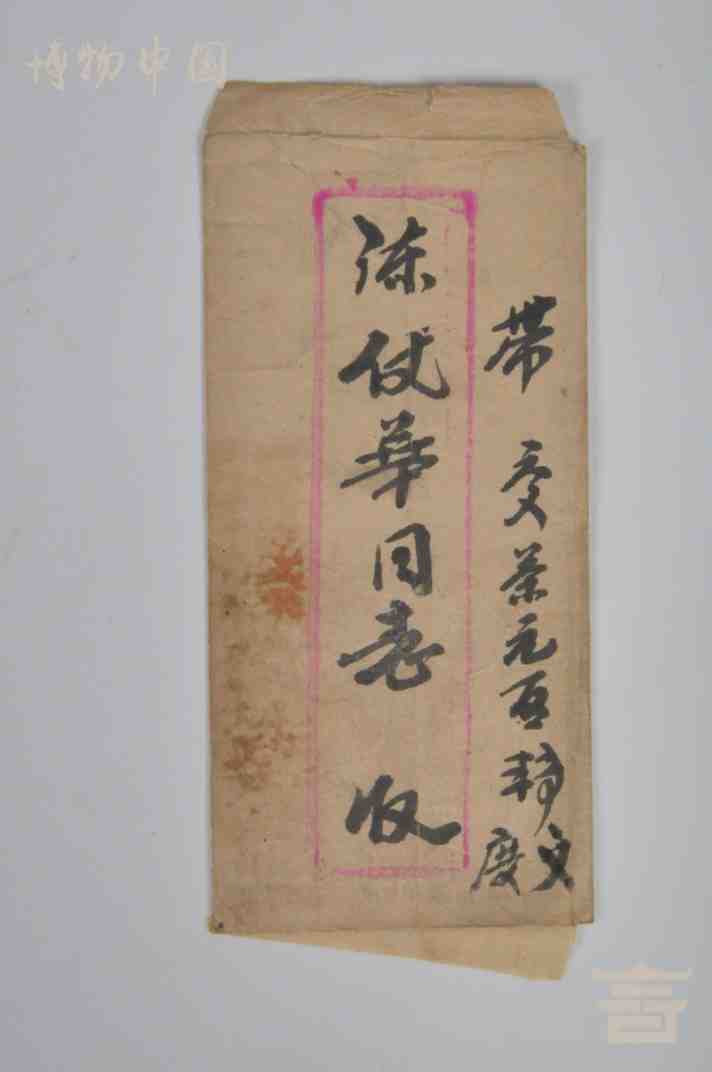 博物中国
带 交茶元百转交
度
陈仗华同志 收